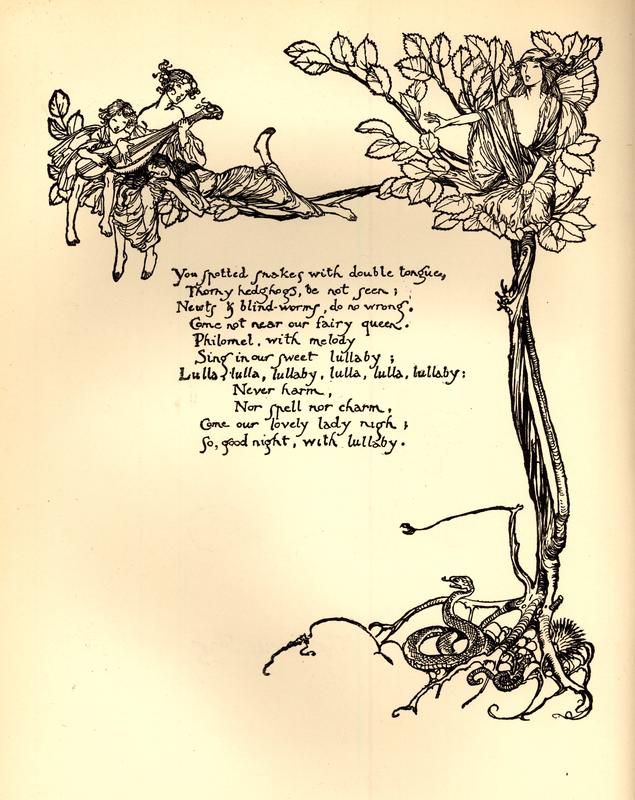 You spotted snakes with double tongue,
Thorny hedghogs, be not seen ;
Newts & blind-worms, do no wrong.
Come not near our fairy queen.
Philomel, with melody
Sing in our sweet lullaby ;
Lulla, lulla, lullaby, lulla, lulla, lullaby:
Never harm,
Nor spell nor charm,
Come our lovely lady nigh ;
So, good night, with lullaby.